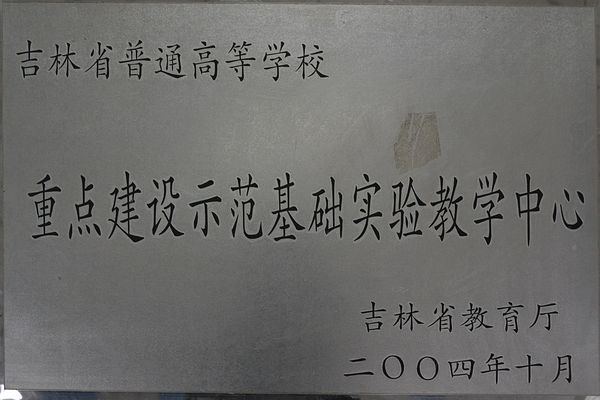 吉林省普通高等学校
重点建设示范基础实验教学中心
吉林省教育厅
二〇〇四年十月